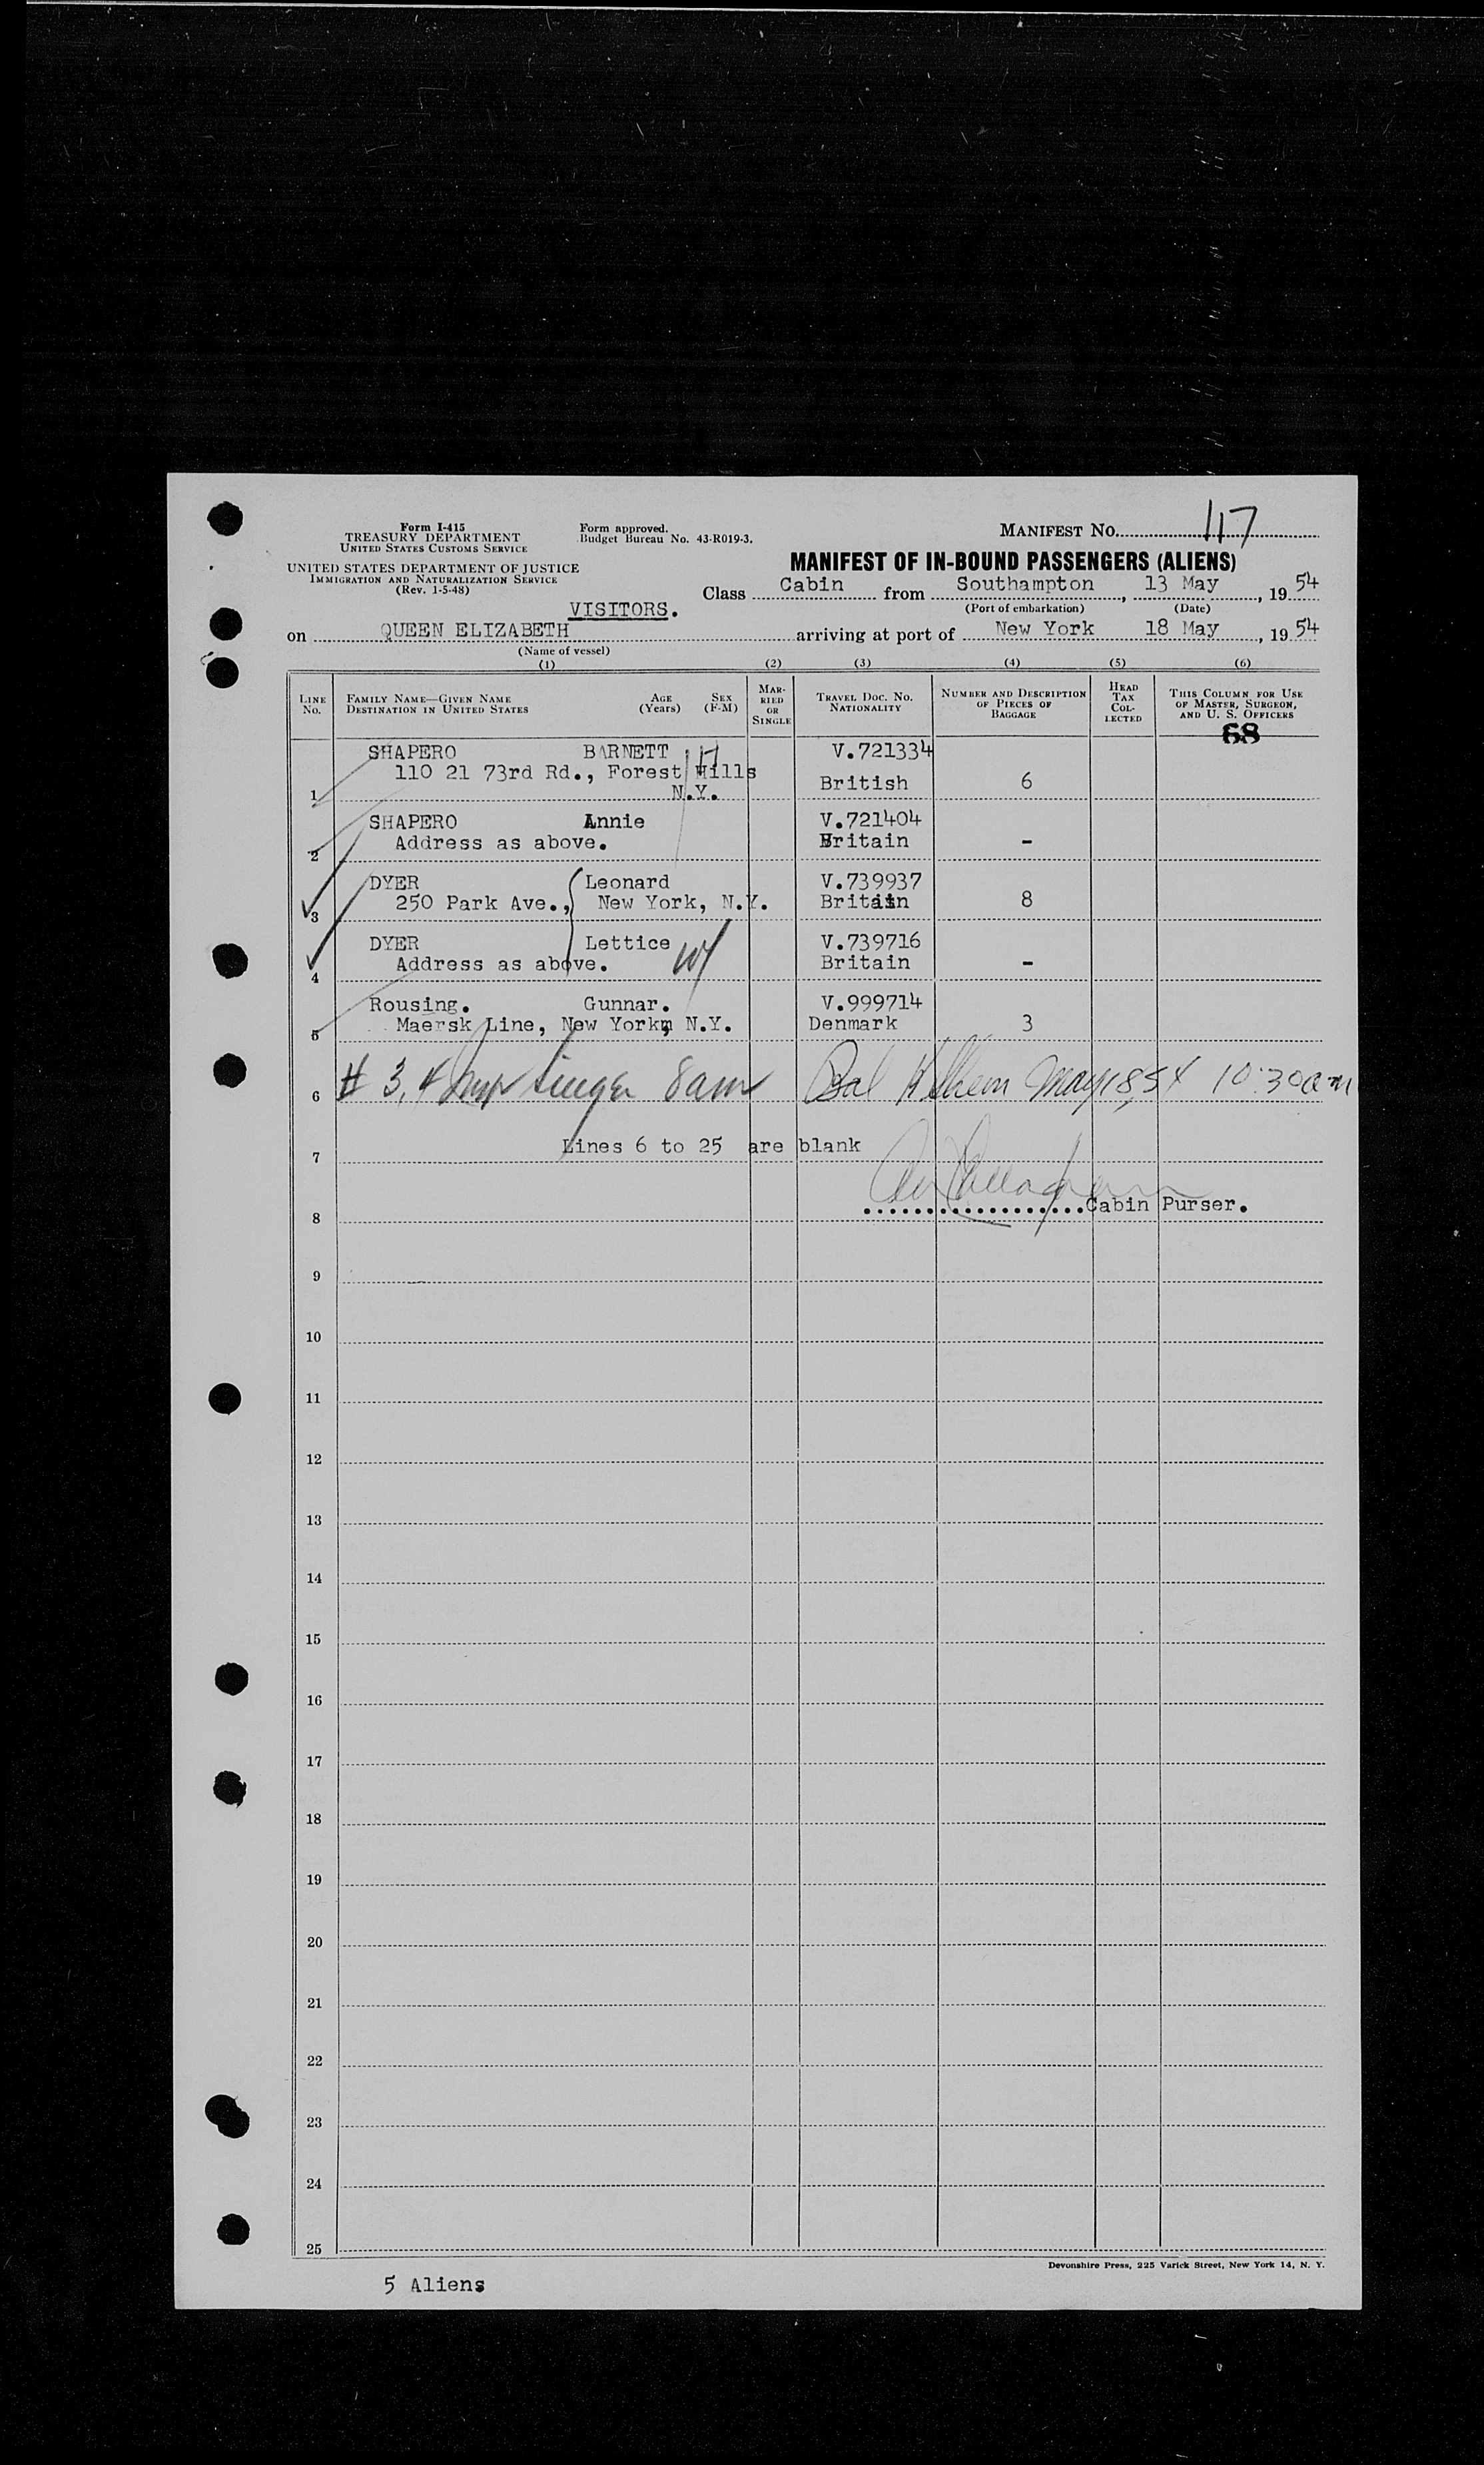 Form I-415
TREASURY DEPARTMENT
UNITED STATES CUSTOMS SERVICE
UNITED STATES DEPARTMENT OF JUSTICE
IMMIGRATION AND NATURALIZATION SERVICE
(Rev. 1-5-48)
Form approved.
Budget Bureau No. 43-R019-3.
MANIFEST NO. 117
MANIFEST OF IN-BOUND PASSENGERS (ALIENS)
Class Cabin from Southampton, 13 May, 1954
(Port of embarkation) (Date)
VISITORS.
on QUEEN ELIZABETH arriving at port of New York 18 May, 1954
(Name of vessel)
(1) (2) (3) (4) (5) (6)
LINE NO. FAMILY NAME—GIVEN NAME DESTINATION IN UNITED STATES AGE (Years) SEX (F-M) MARRIED OR SINGLE TRAVEL DOC. NO. NATIONALITY NUMBER AND DESCRIPTION OF PIECES OF BAGGAGE HEAD TAX COLLECTED THIS COLUMN FOR USE OF MASTER, SURGEON, AND U. S. OFFICERS
68
SHAPERO BARNETT V.721334
110 21 73rd Rd., Forest Hills British 6
1 N.Y.
SHAPERO Annie V.721404
Address as above. Britain -
2
DYER Leonard V.739937
250 Park Ave., New York, N.Y. Britain 8
3
DYER Lettice V.739716
Address as above. Britain -
4
Rousing. Gunnar. V.999714
Maersk Line, New York, N.Y. Denmark 3
5
6 # 3,4 8am Bal May 18, 54 10:30am
Lines 6 to 25 are blank
7
Cabin Purser.
8
9
10
11
12
13
14
15
16
17
18
19
20
21
22
23
24
25
Devonshire Press, 225 Varick Street, New York 14, N. Y.
5 Aliens